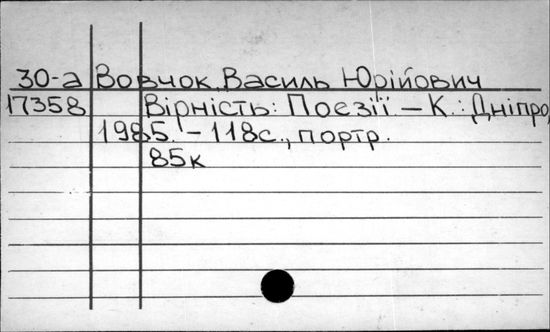 30-а Вовчок, Василь Юрійович
17358 Вірність: Поезії. – К.: Дніпро,
1985. – 118с., портр.
85к